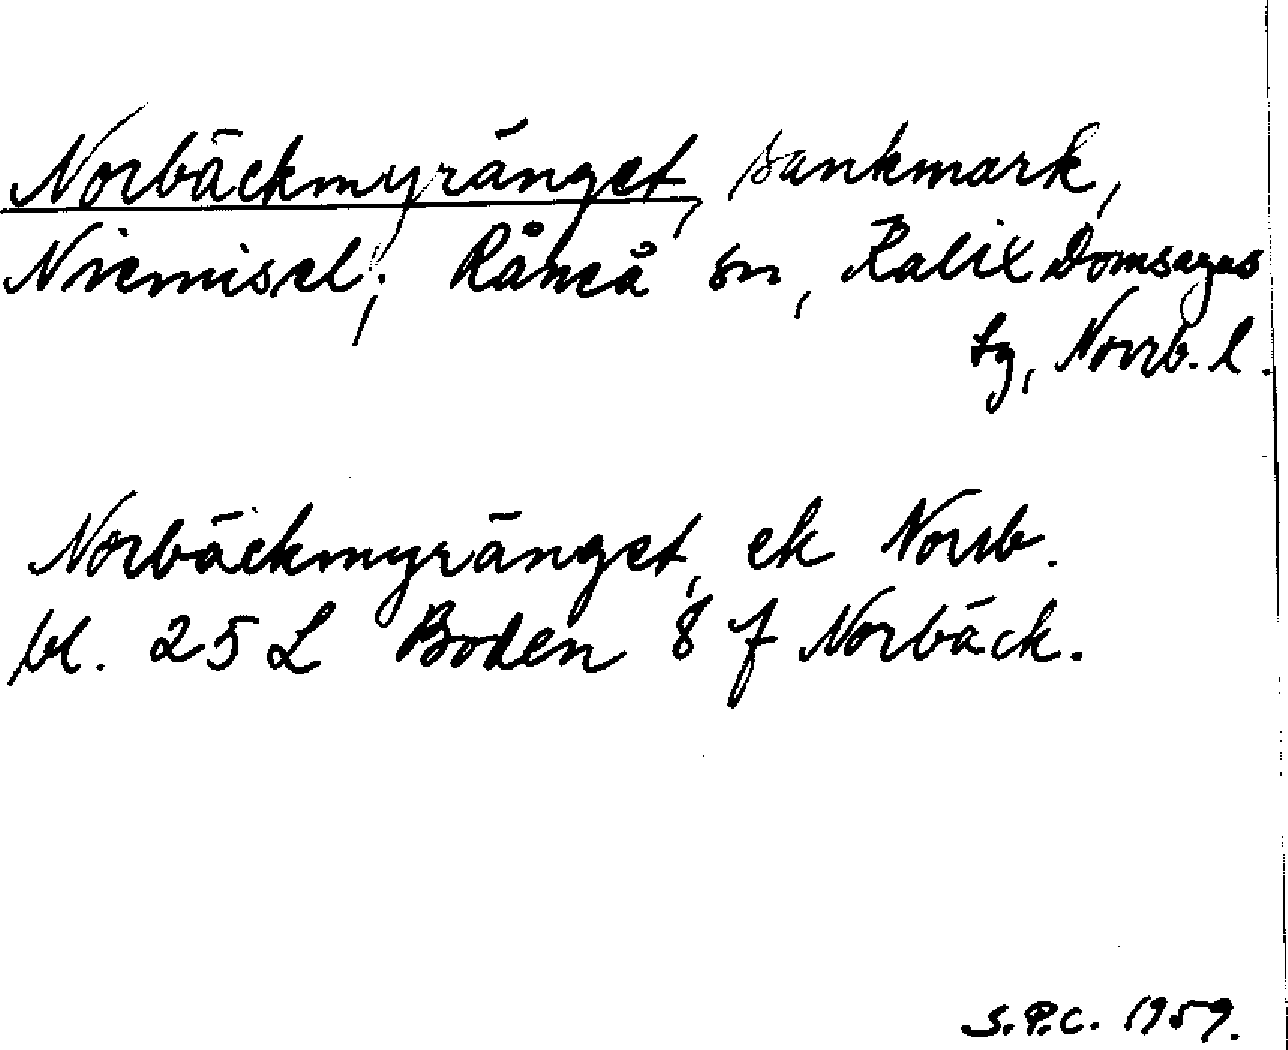 Norbäckmyränget, sankmark,
Niemisel, Råneå sn, Kalix Domsagas
tg, Norrb. l.
Norbäckmyränget, ek Norrb.
bl. 25 L Boden 8 f Norbäck.
S.P.C. 1959.